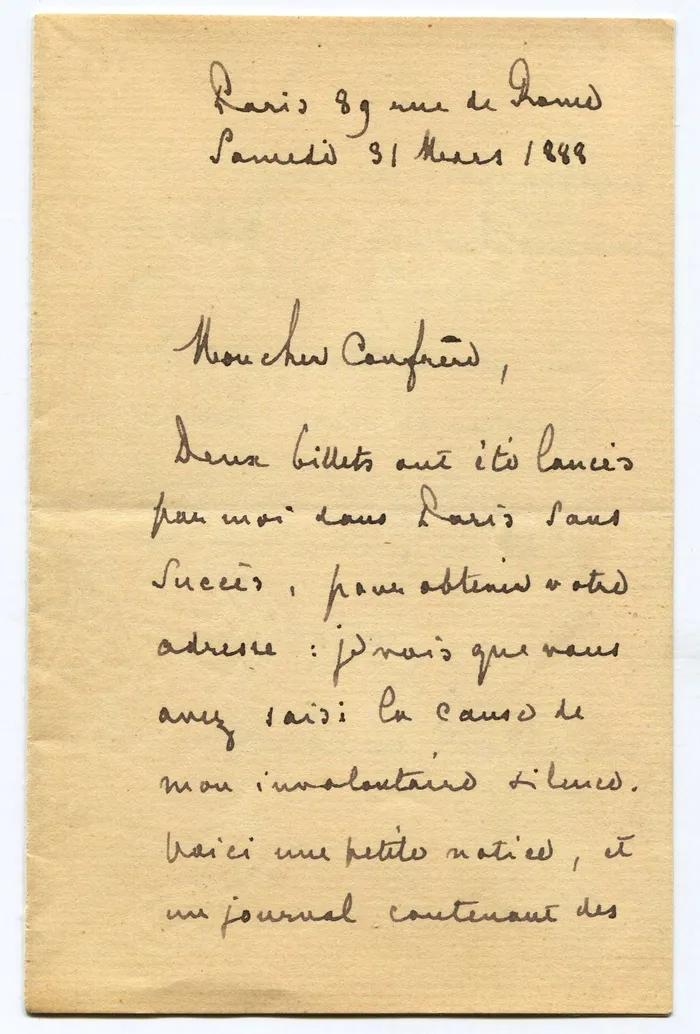 Paris 89 rue de Rome
Samedi 31 Mars 1888
Mon cher Confrère,
Deux billets ont été lancés
par moi dans Paris sans
succès, pour obtenir votre
adresse : je vois que vous
avez saisi la cause de
mon involontaire silence.
Voici une petite notice, et
un journal contenant des